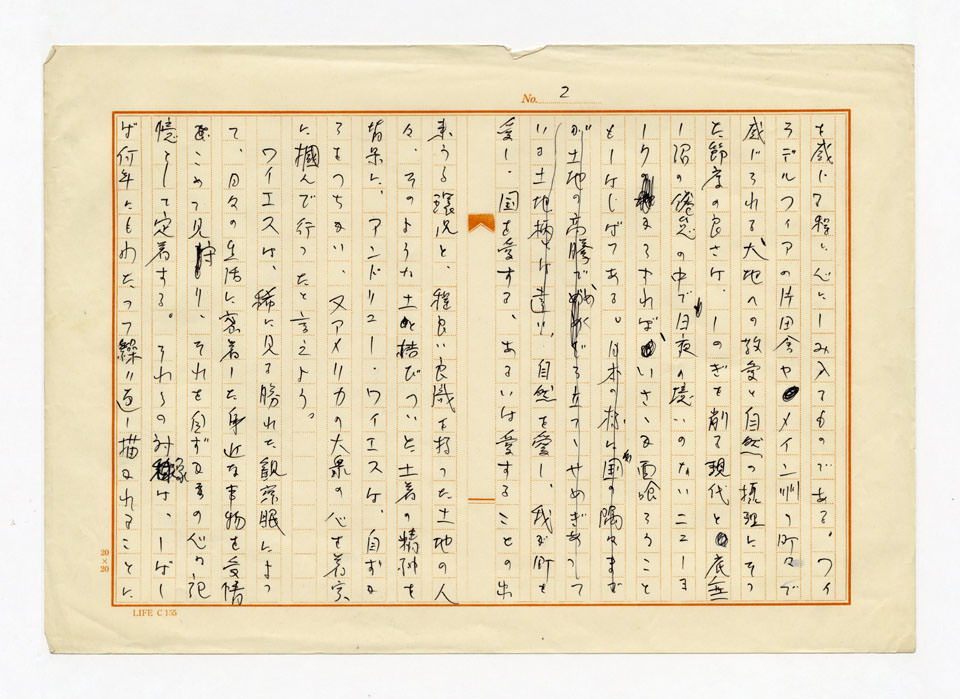 No. 2
を感じる程に心にしみ入るものである。フィ
ラデルフィアの片田舎やメイン州の町々で
感じられる大地への敬愛と自然の摂理にそっ
た節度の良さは、しのぎを削る現代と底無
し沼の倦怠の中で日夜の境いのないニューヨ
ークのなるすれば、いさゝか面喰らうこと
もしばしばである。日本の様に国の隅々まで
が土地の高騰でがめがめと立てゝせめぎあって
いる土地柄とは違い、自然を愛し、我が町を
愛し、国を愛する、あるいは愛することの出
来うる環況と、程良い良識を持った土地の人
々、そのような土と結びついた土着の精神を
背景に、アンドリュー・ワイエスは、自ずか
らをつちかい、又アメリカの大衆の心を着実
に摑んで行ったと言えよう。
ワイエスは、稀に見る勝れた観察眼によっ
て、日々の生活に密着した身近な事物を愛情
をこめて見守り、それを自ずからの心の記
憶として定着する。それらの対象は、しばし
ば何年にもわたって繰り返し描かれることに
20×20
LIFE C155